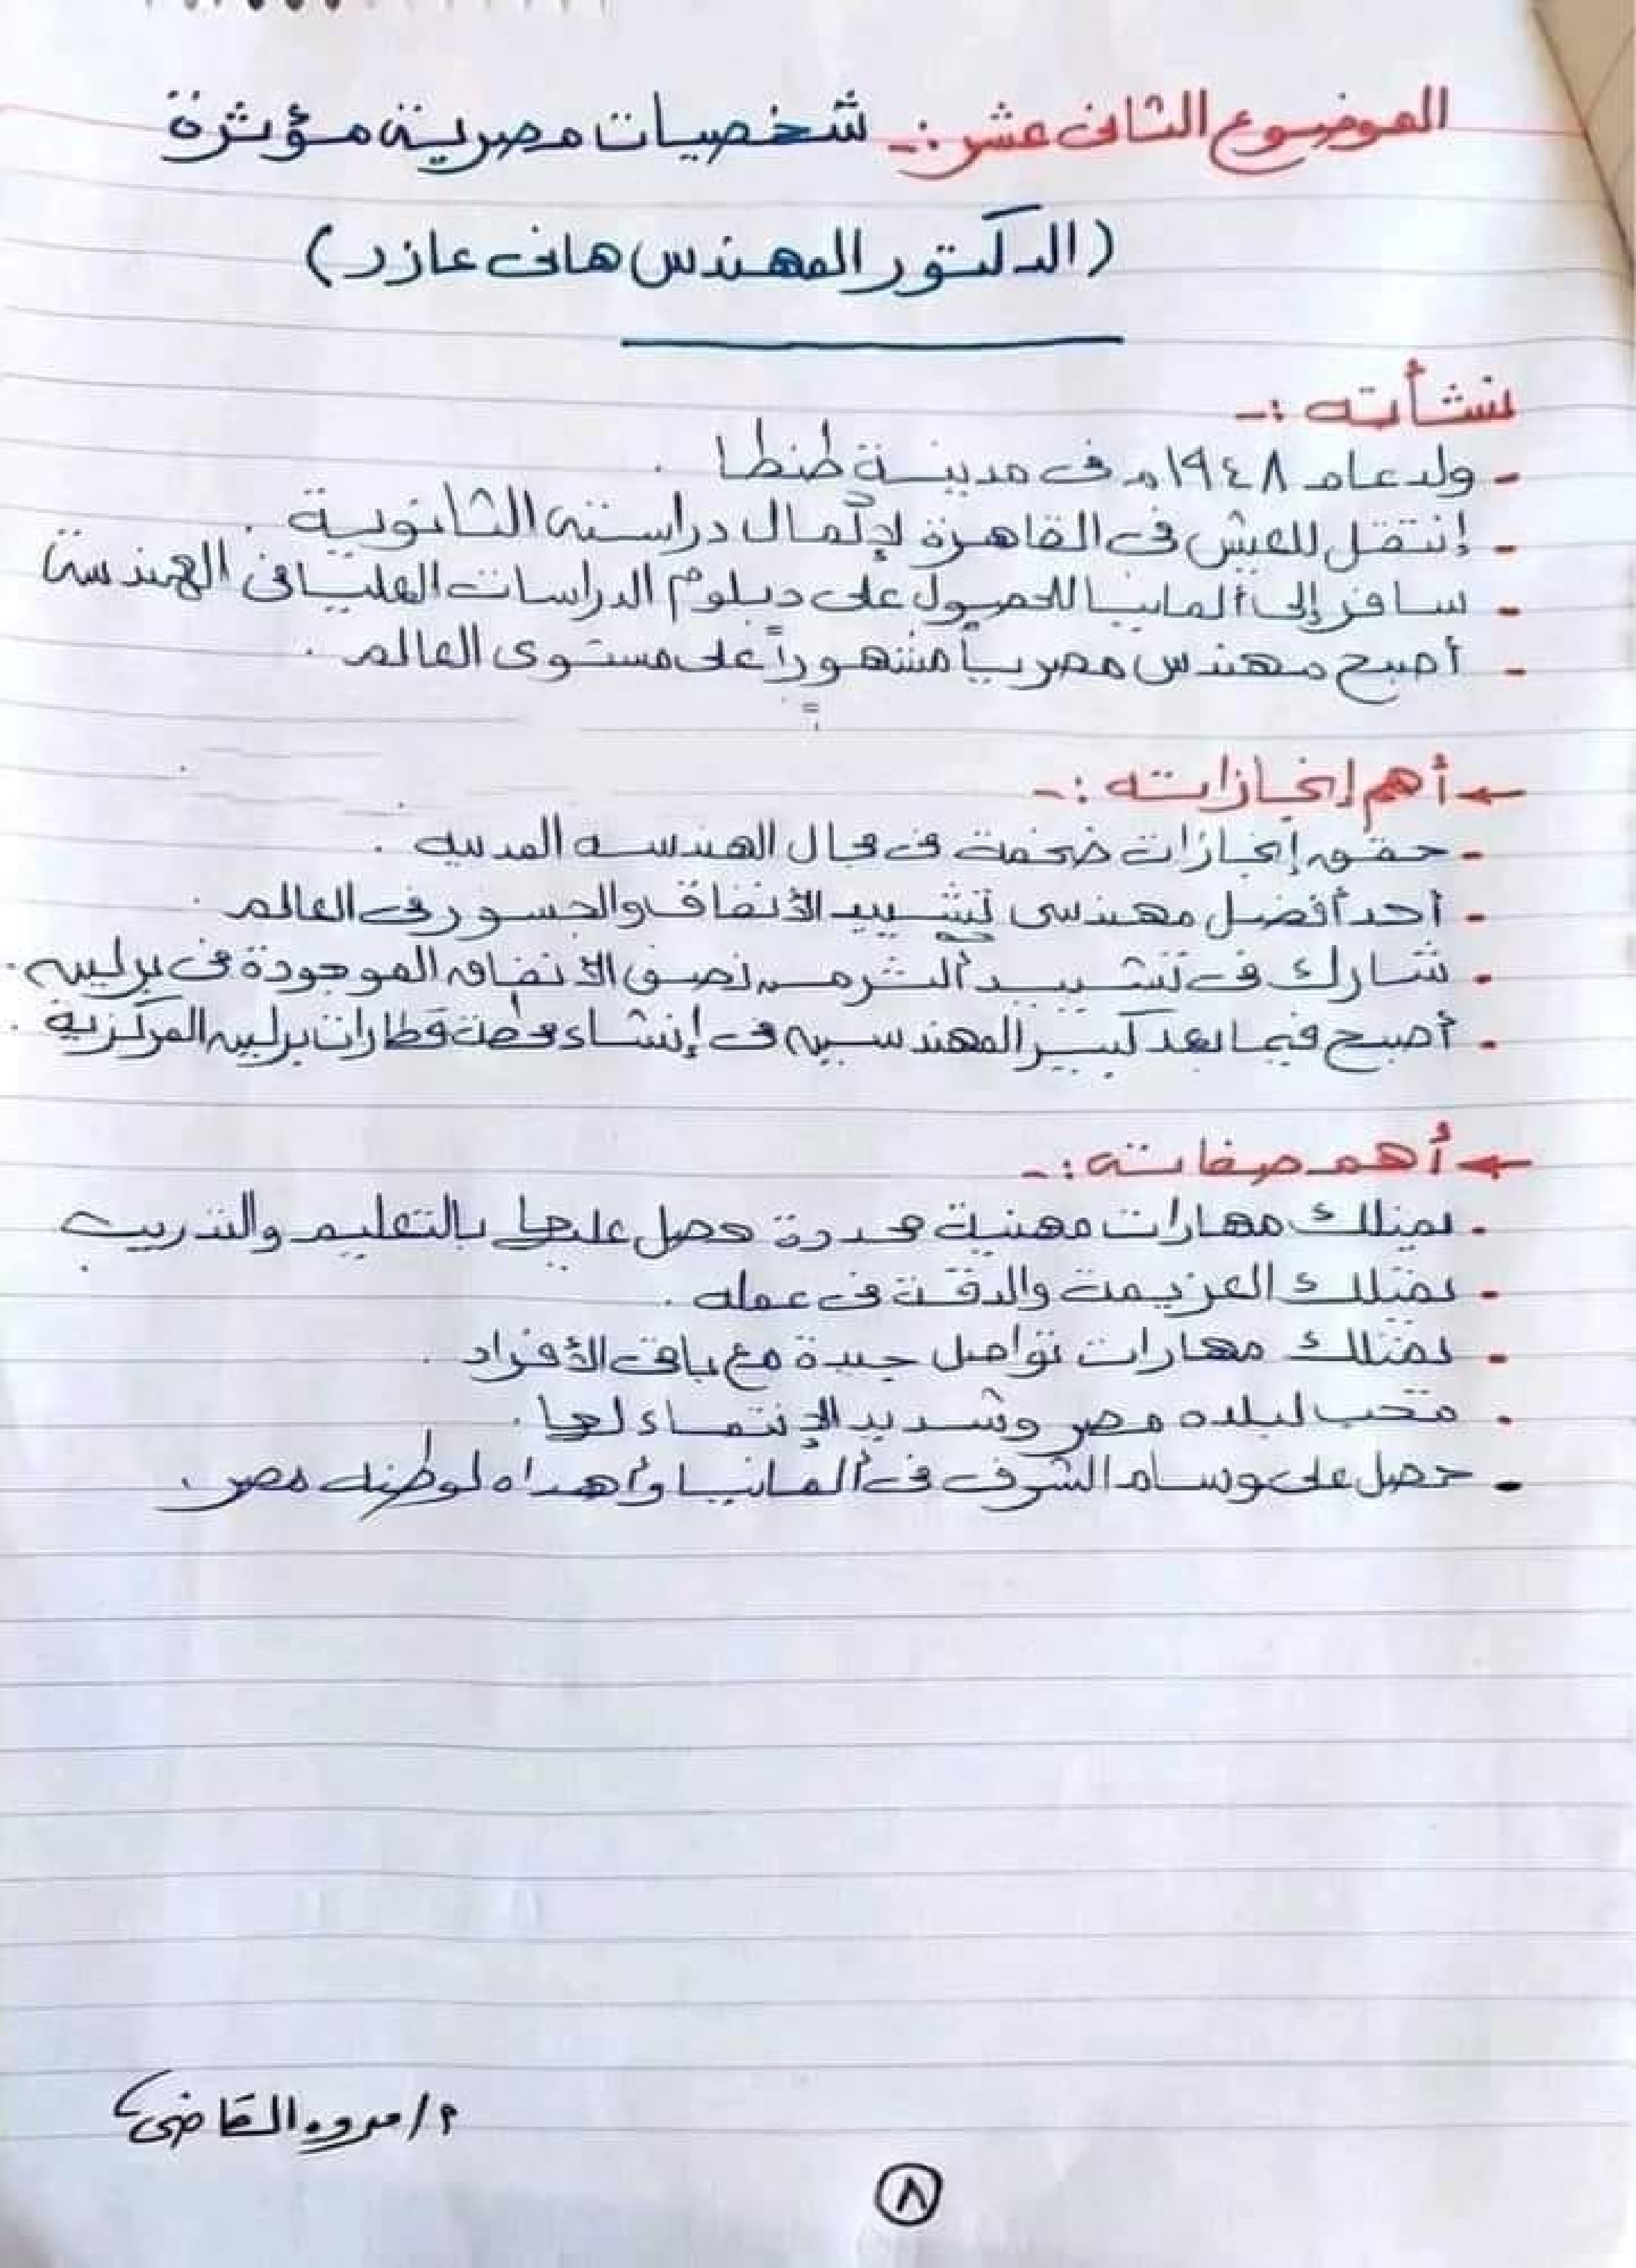 الموضوع الثانى عشر :- شخصيات مصرية مؤثرة
(الدكتور المهندس هانى عازر)
نشأته :-
- ولد عام ١٩٤٨م فى مدينة طنطا .
- إنتقل للعيش فى القاهرة لإكمال دراسته الثانوية .
- سافر إلى ألمانيا للحصول على دبلوم الدراسات العليا فى الهندسة
- أصبح مهندس مصرياً مشهوراً على مستوى العالم .
← أهم إنجازاته :-
- حقق إنجازات ضخمة فى مجال الهندسه المدنيه .
- أحد أفضل مهندسى تشييد الأنفاق والجسور فى العالم .
- شارك فى تشييد أكثر من نصف الأنفاق الموجودة فى برلين .
- أصبح فيما بعد كبير المهندسين فى إنشاء محطة قطارات برلين المركزية .
← أهم صفاته :-
- يمتلك مهارات مهنية محددة حصل عليها بالتعليم والتدريب .
- يمتلك العزيمة والدقة فى عمله .
- يمتلك مهارات تواصل جيدة مع باقى الأفراد .
- محب لبلده مصر وشديد الإنتماء لها .
- حصل على وسام الشرف فى ألمانيا وأهداه لوطنه مصر .
م/ مروه القاضى
٨